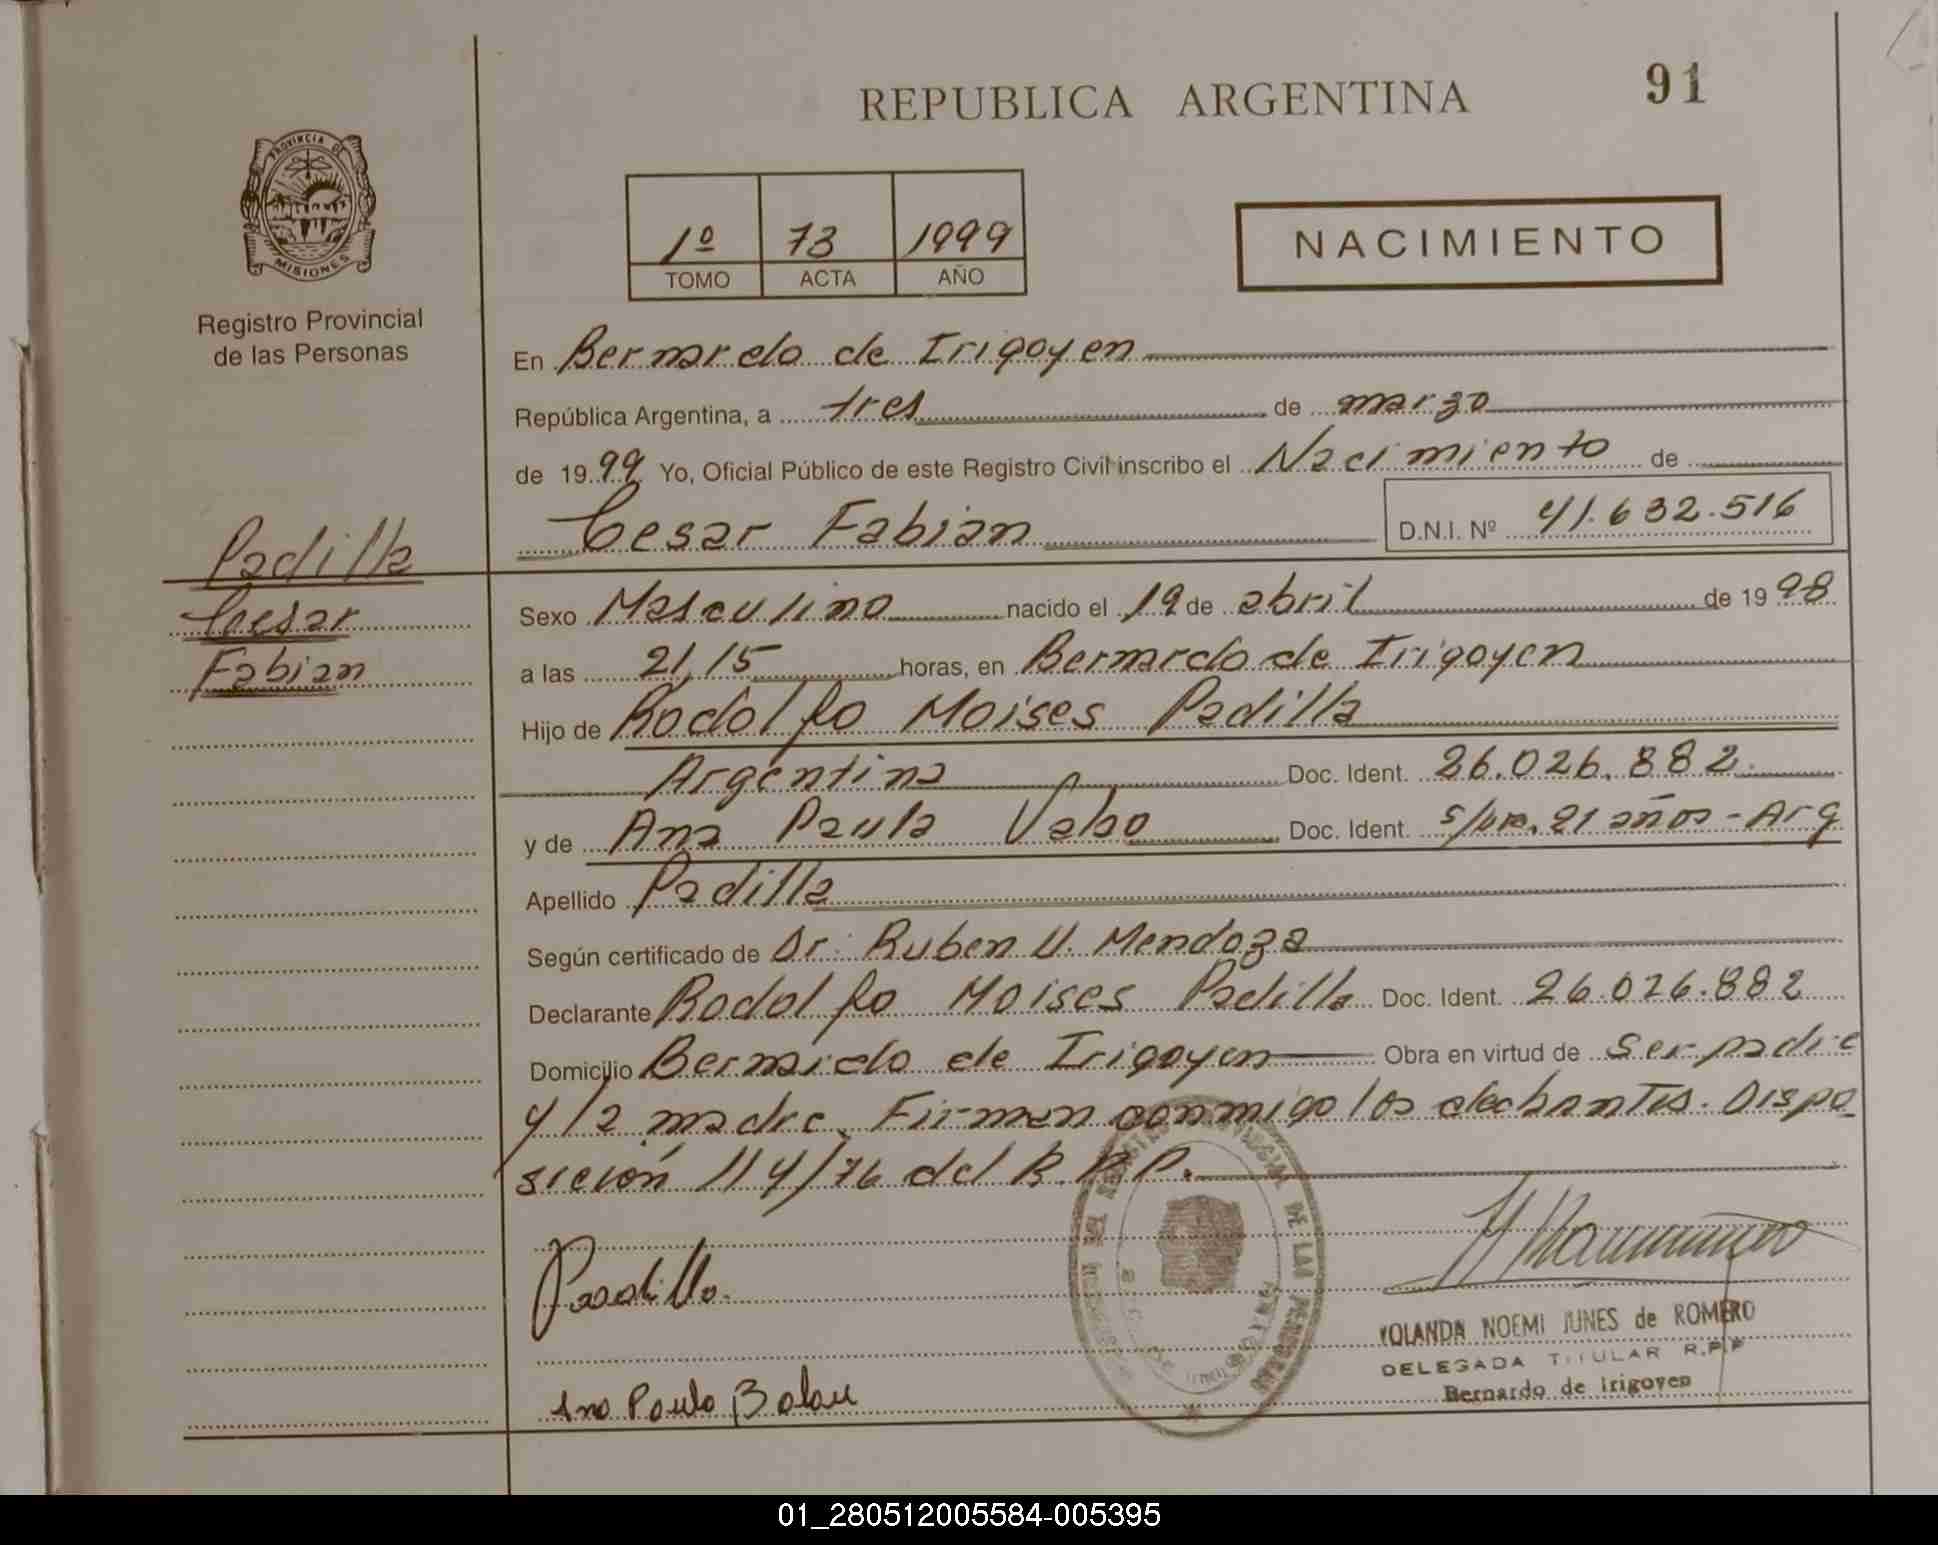 REPUBLICA ARGENTINA
91
PROVINCIA DE
MISIONES
Registro Provincial
de las Personas
1º 73 1999
TOMO ACTA AÑO
NACIMIENTO
En Bernardo de Irigoyen
República Argentina, a tres de marzo
de 1999 Yo, Oficial Público de este Registro Civil inscribo el Nacimiento de
Cesar Fabian D.N.I. Nº 41.632.516
Padilla
Cesar
Fabian
Sexo Masculino nacido el 19 de abril de 1998
a las 21,15 horas, en Bernardo de Irigoyen
Hijo de Rodolfo Moises Padilla
Argentina Doc. Ident. 26.026.882
y de Ana Paula Doc. Ident. 21 años - Arg
Apellido Padilla
Según certificado de Dr. Ruben U. Mendoza
Declarante Rodolfo Moises Padilla Doc. Ident. 26.026.882
Domicilio Bernardo de Irigoyen Obra en virtud de ser padre
y la madre. Firman conmigo los declarantes. Dispo
sición 114/76 del R.P.P.
Padilla
Ana Paula
DE LAS PERSONAS
YOLANDA NOEMI JUNES de ROMERO
DELEGADA TITULAR R.P.P
Bernardo de Irigoyen
01_280512005584-005395